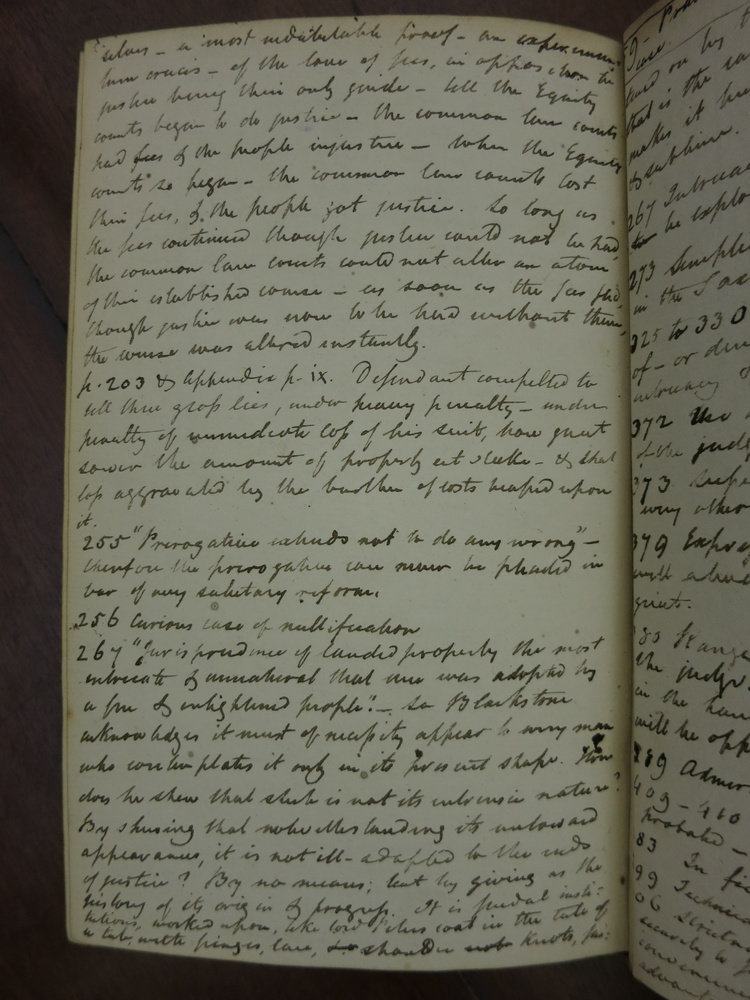 silver – a most indubitable proof – an experimen
tum crucis – of the love of fees, in opposition to
justice being their only guide – till the Equity
courts began to do justice – the common law courts
had fees & the people injustice – When the Equity
courts so began – the common law courts lost
their fees, & the people got justice. So long as
the fees continued though justice could not be had
the common law courts could not alter an atom
of their established course – as soon as the fees fled
though justice was now to be had without them,
the course was altered instantly.
p. 203 & Appendix p. ix. Defendant compelled to
tell three gross lies, under heavy penalty – under
penalty of immediate loss of his suit, how great
soever the amount of property at stake – & that
loss aggravated by the burthen of costs heaped upon
it.
255 "Prerogative extends not to do any wrong" –
therefore the prerogative can never be pleaded in
bar of any salutary reform.
256 Curious case of nullification
267 "Jurisprudence of landed property the most
intricate & unnatural that ever was adopted by
a free & enlightened people". – So Blackstone
acknowledges it must of necessity appear to every man
who contemplates it only in its present shape. How
does he shew that such is not its intrinsic nature?
By shewing that notwithstanding its untoward
appearances, it is not ill-adapted to the ends
of justice? By no means; but by giving us the
history of its origin & progress. It is feudal insti-
tutions, worked upon, like lord Peter's coat in the tale of
a tub, with fringes, lace, shoulder knots,
59
Juve
turned on by
that is the
makes it
& sublime.
267 Intricac
to be explo
273 Simple
in the Sax
325 to 330
of – or
intricacy of
372 The
of the judg
373
every other
379 Expre
will
griet.
Strange
the judge
in the han
will be opp
389 Admir
409 – 410
probate –
83 In fi
99 Technica
06 Strictur
security to
convenienc
advant